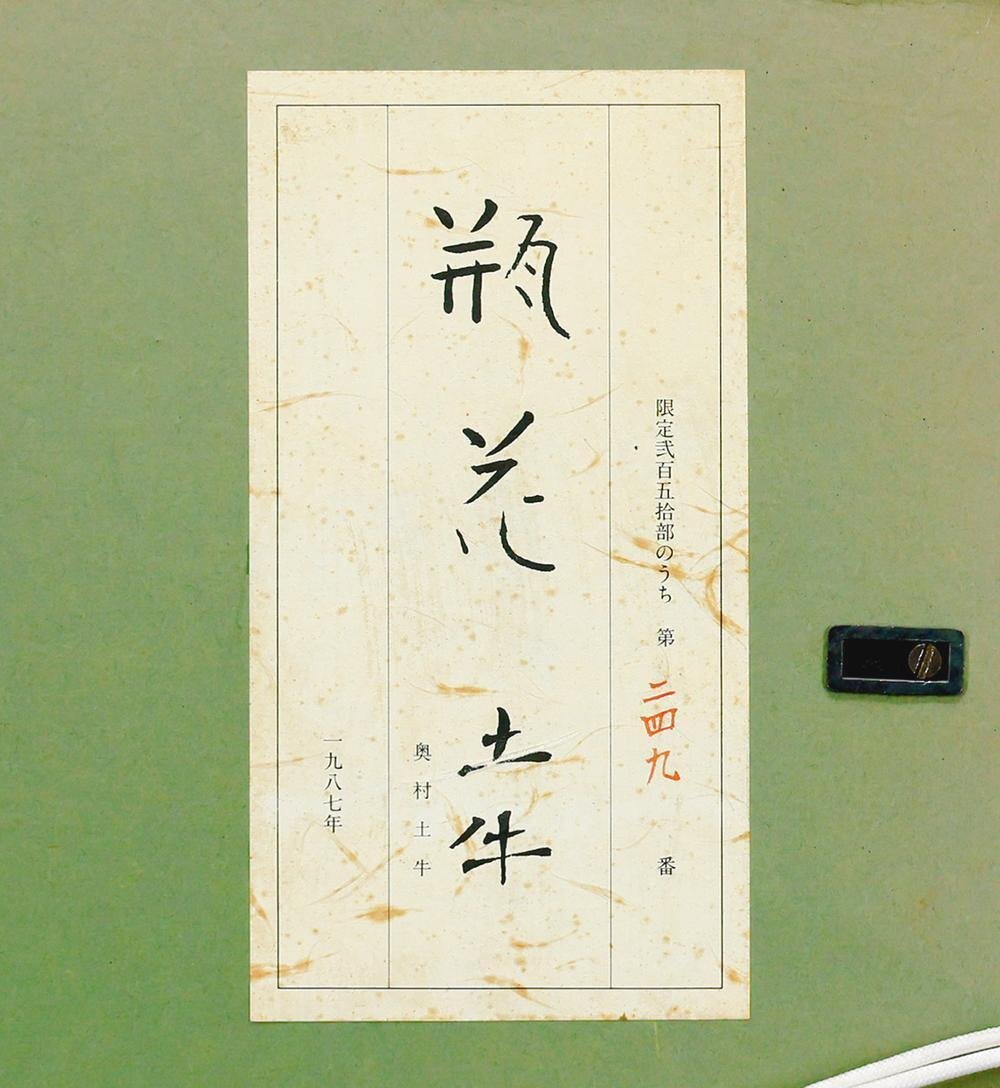 限定弐百五拾部のうち 第 二四九 番
瓶花 土牛
奥村土牛
一九八七年